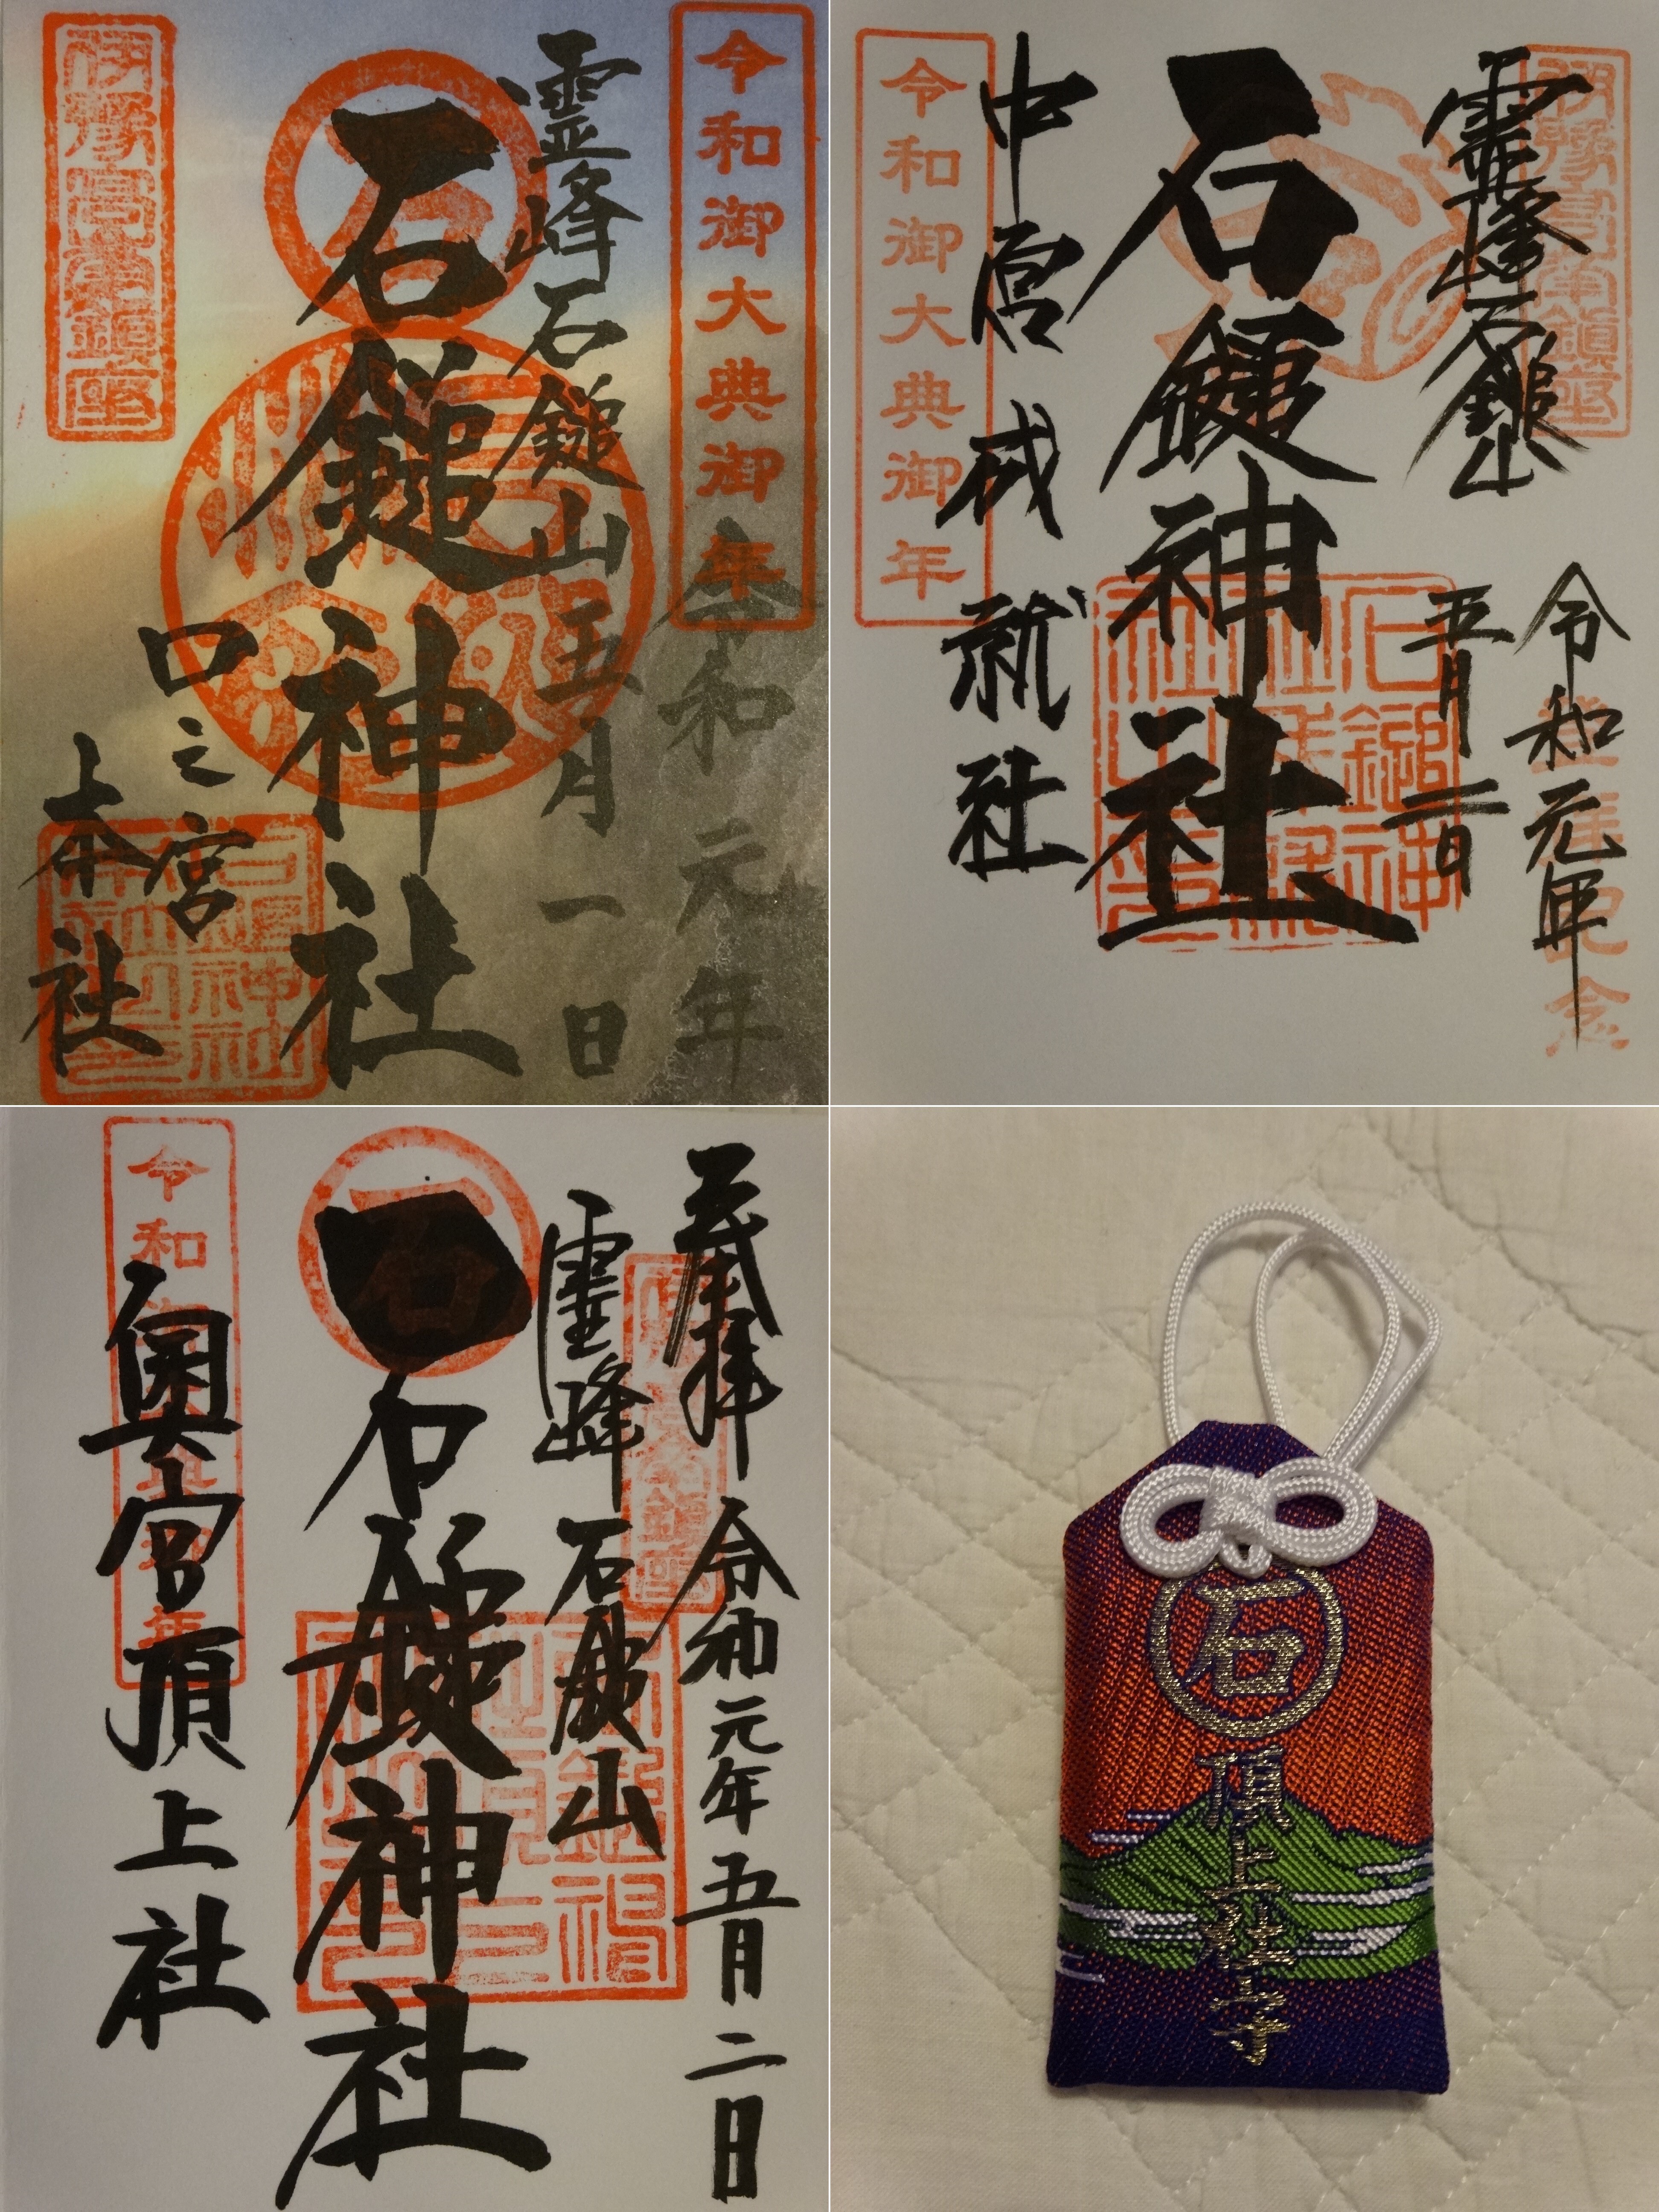 令和御大典御年
令和元年
霊峰石鎚山
五月一日
石鎚神社
石
口之宮
本社
伊豫高嶺鎮座
霊峰石鎚山
令和元年
五月二日
登拝記念
石鎚神社
中宮成就社
令和御大典御年
奉拝
令和元年五月二日
霊峰石鎚山
石鎚神社
石
奥宮頂上社
石
頂上社守